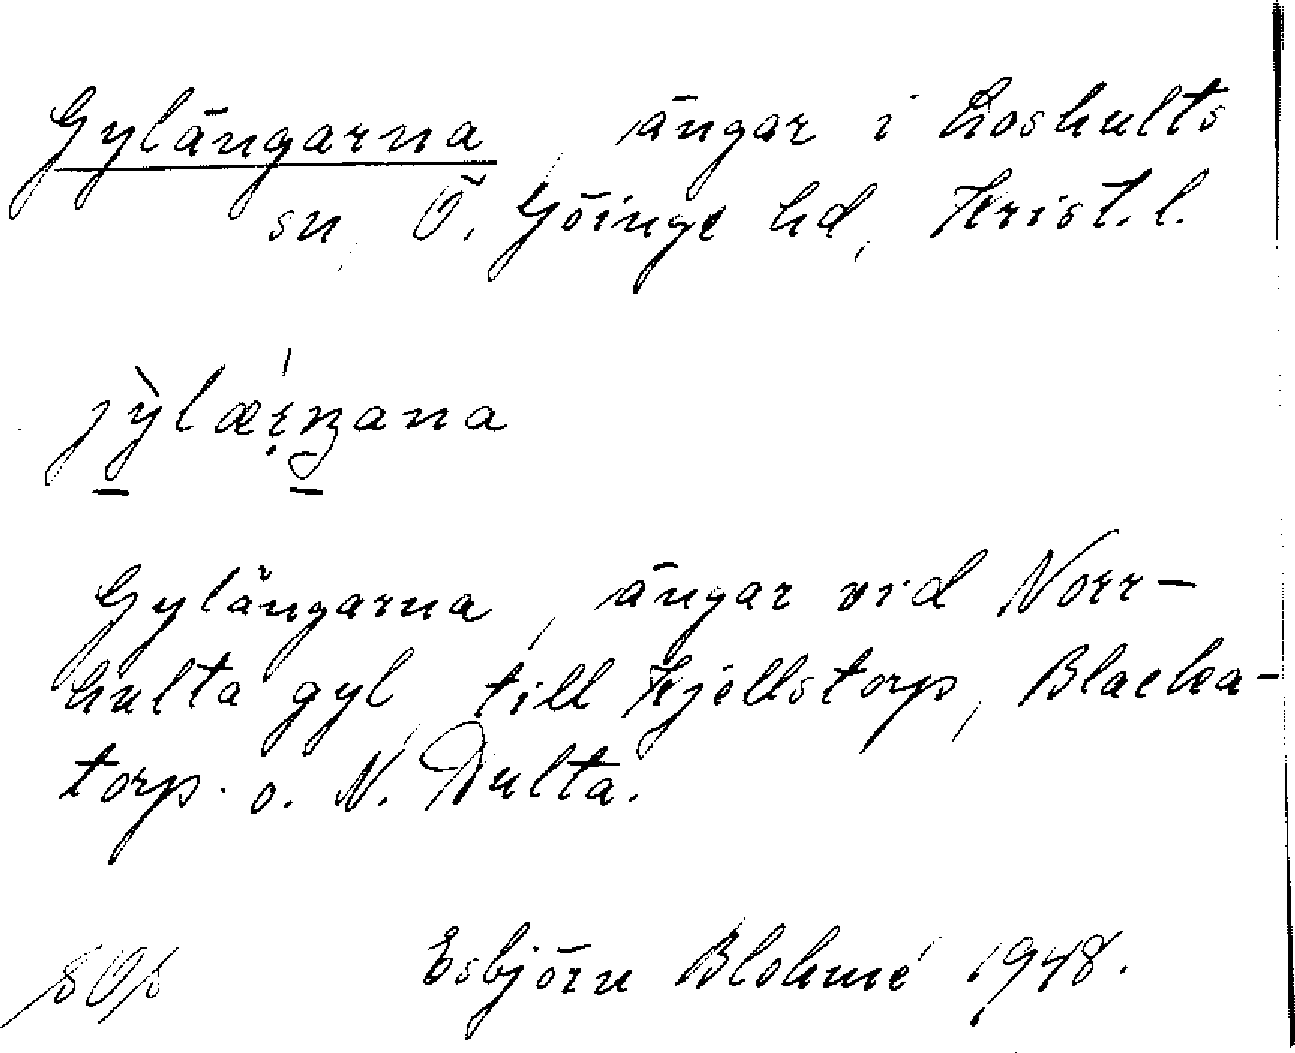 Gylängarna, ängar i Loshults
sn, Ö. Göinge hd, Krist. l.
Gylängarna, ängar vid Norr-
hulta gyl, till Kjellstorp, Blacka-
torp o. N. Hulta.
Esbjörn Blohmé 1948.